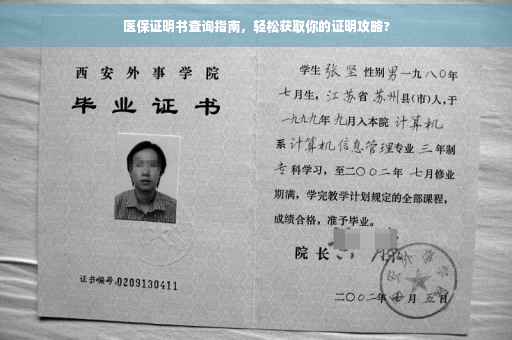 医保证明书查询指南，轻松获取你的证明攻略?
西安外事学院
毕业证书
证书编号:0209130411
学生 张坚 性别 男 一九八0年
七月生，江苏省 苏州县(市)人，于
一九九九年 九月入本院 计算机
系 计算机信息管理专业 三 年制
专科学习，至二〇〇二年 七月修业
期满，学完教学计划规定的全部课程，
成绩合格，准予毕业。
院长
二〇〇二年 月 五日